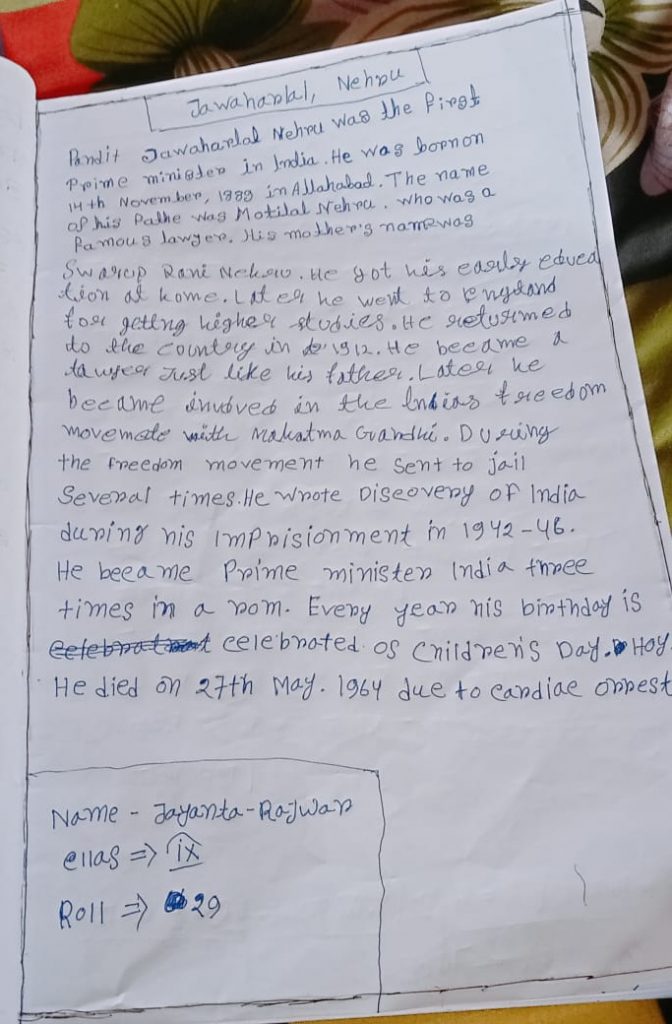 Jawaharlal, Nehru
Pandit Jawaharlal Nehru was the first
Prime minister in India. He was bornon
14th November, 1889 in Allahabad. The name
of his Pathe was Motilal Nehru. who was a
famous lawyer. His mother's namewas
Swarup Rani Nehru. He got his early educa
tion at home. Later he went to England
for gettng higher studies. He returned
to the country in 1912. He became a
lawyer Just like his father. Later he
became involved in the Indias freedom
movemate with Mahatma Gandhi. During
the freedom movement he sent to jail
Several times. He wrote Discovery of India
during his Imprisionment in 1942-46.
He became Prime minister India three
times in a rom. Every year his birthday is
celebrated os Children's Day. Hoy.
He died on 27th May. 1964 due to cardiac orrest
Name - Jayanta-Rajwar
Cllas ⇒ ix
Roll ⇒ 29